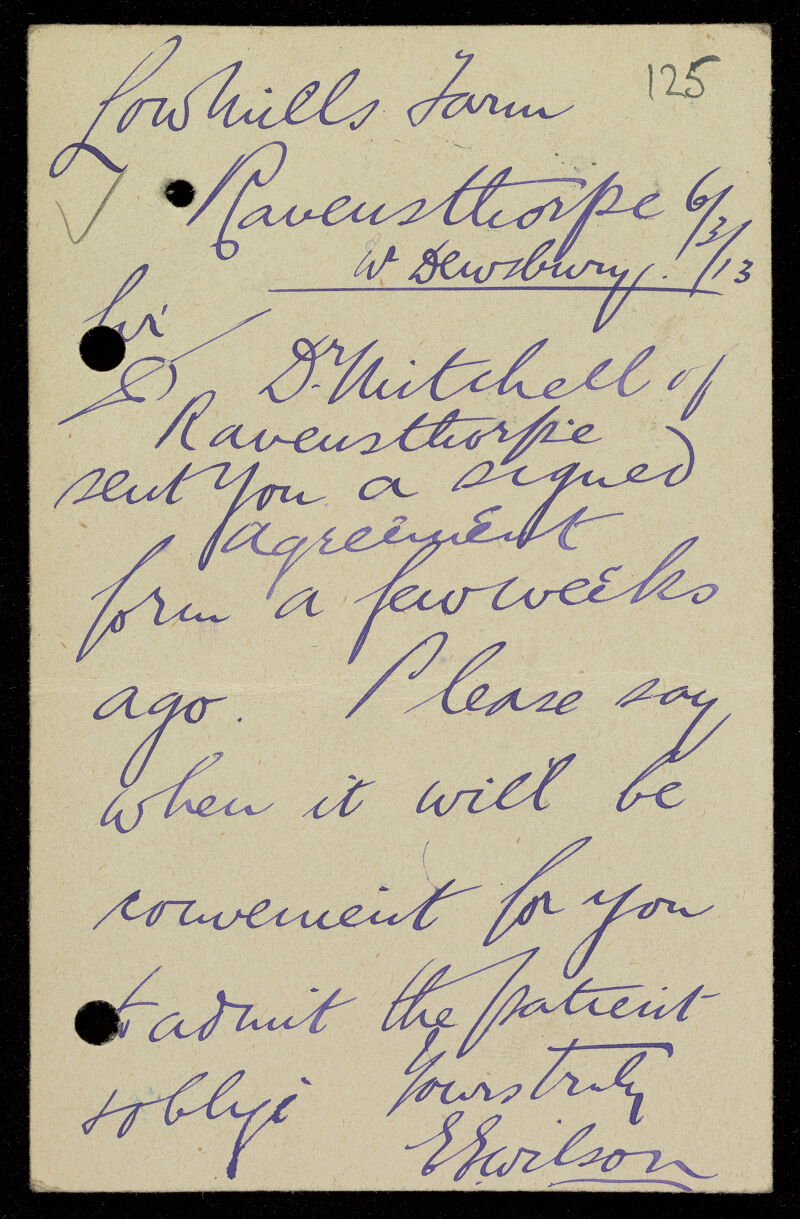 125
Lowmills Farm
Ravensthorpe 6/3/13
Nr Dewsbury.
Sir
Dr. Mitchell of
Ravensthorpe
sent you a signed
agreement
form a few weeks
ago. Please say
when it will be
convenient for you
to admit the patient
& oblige Yours truly
E E Wilson